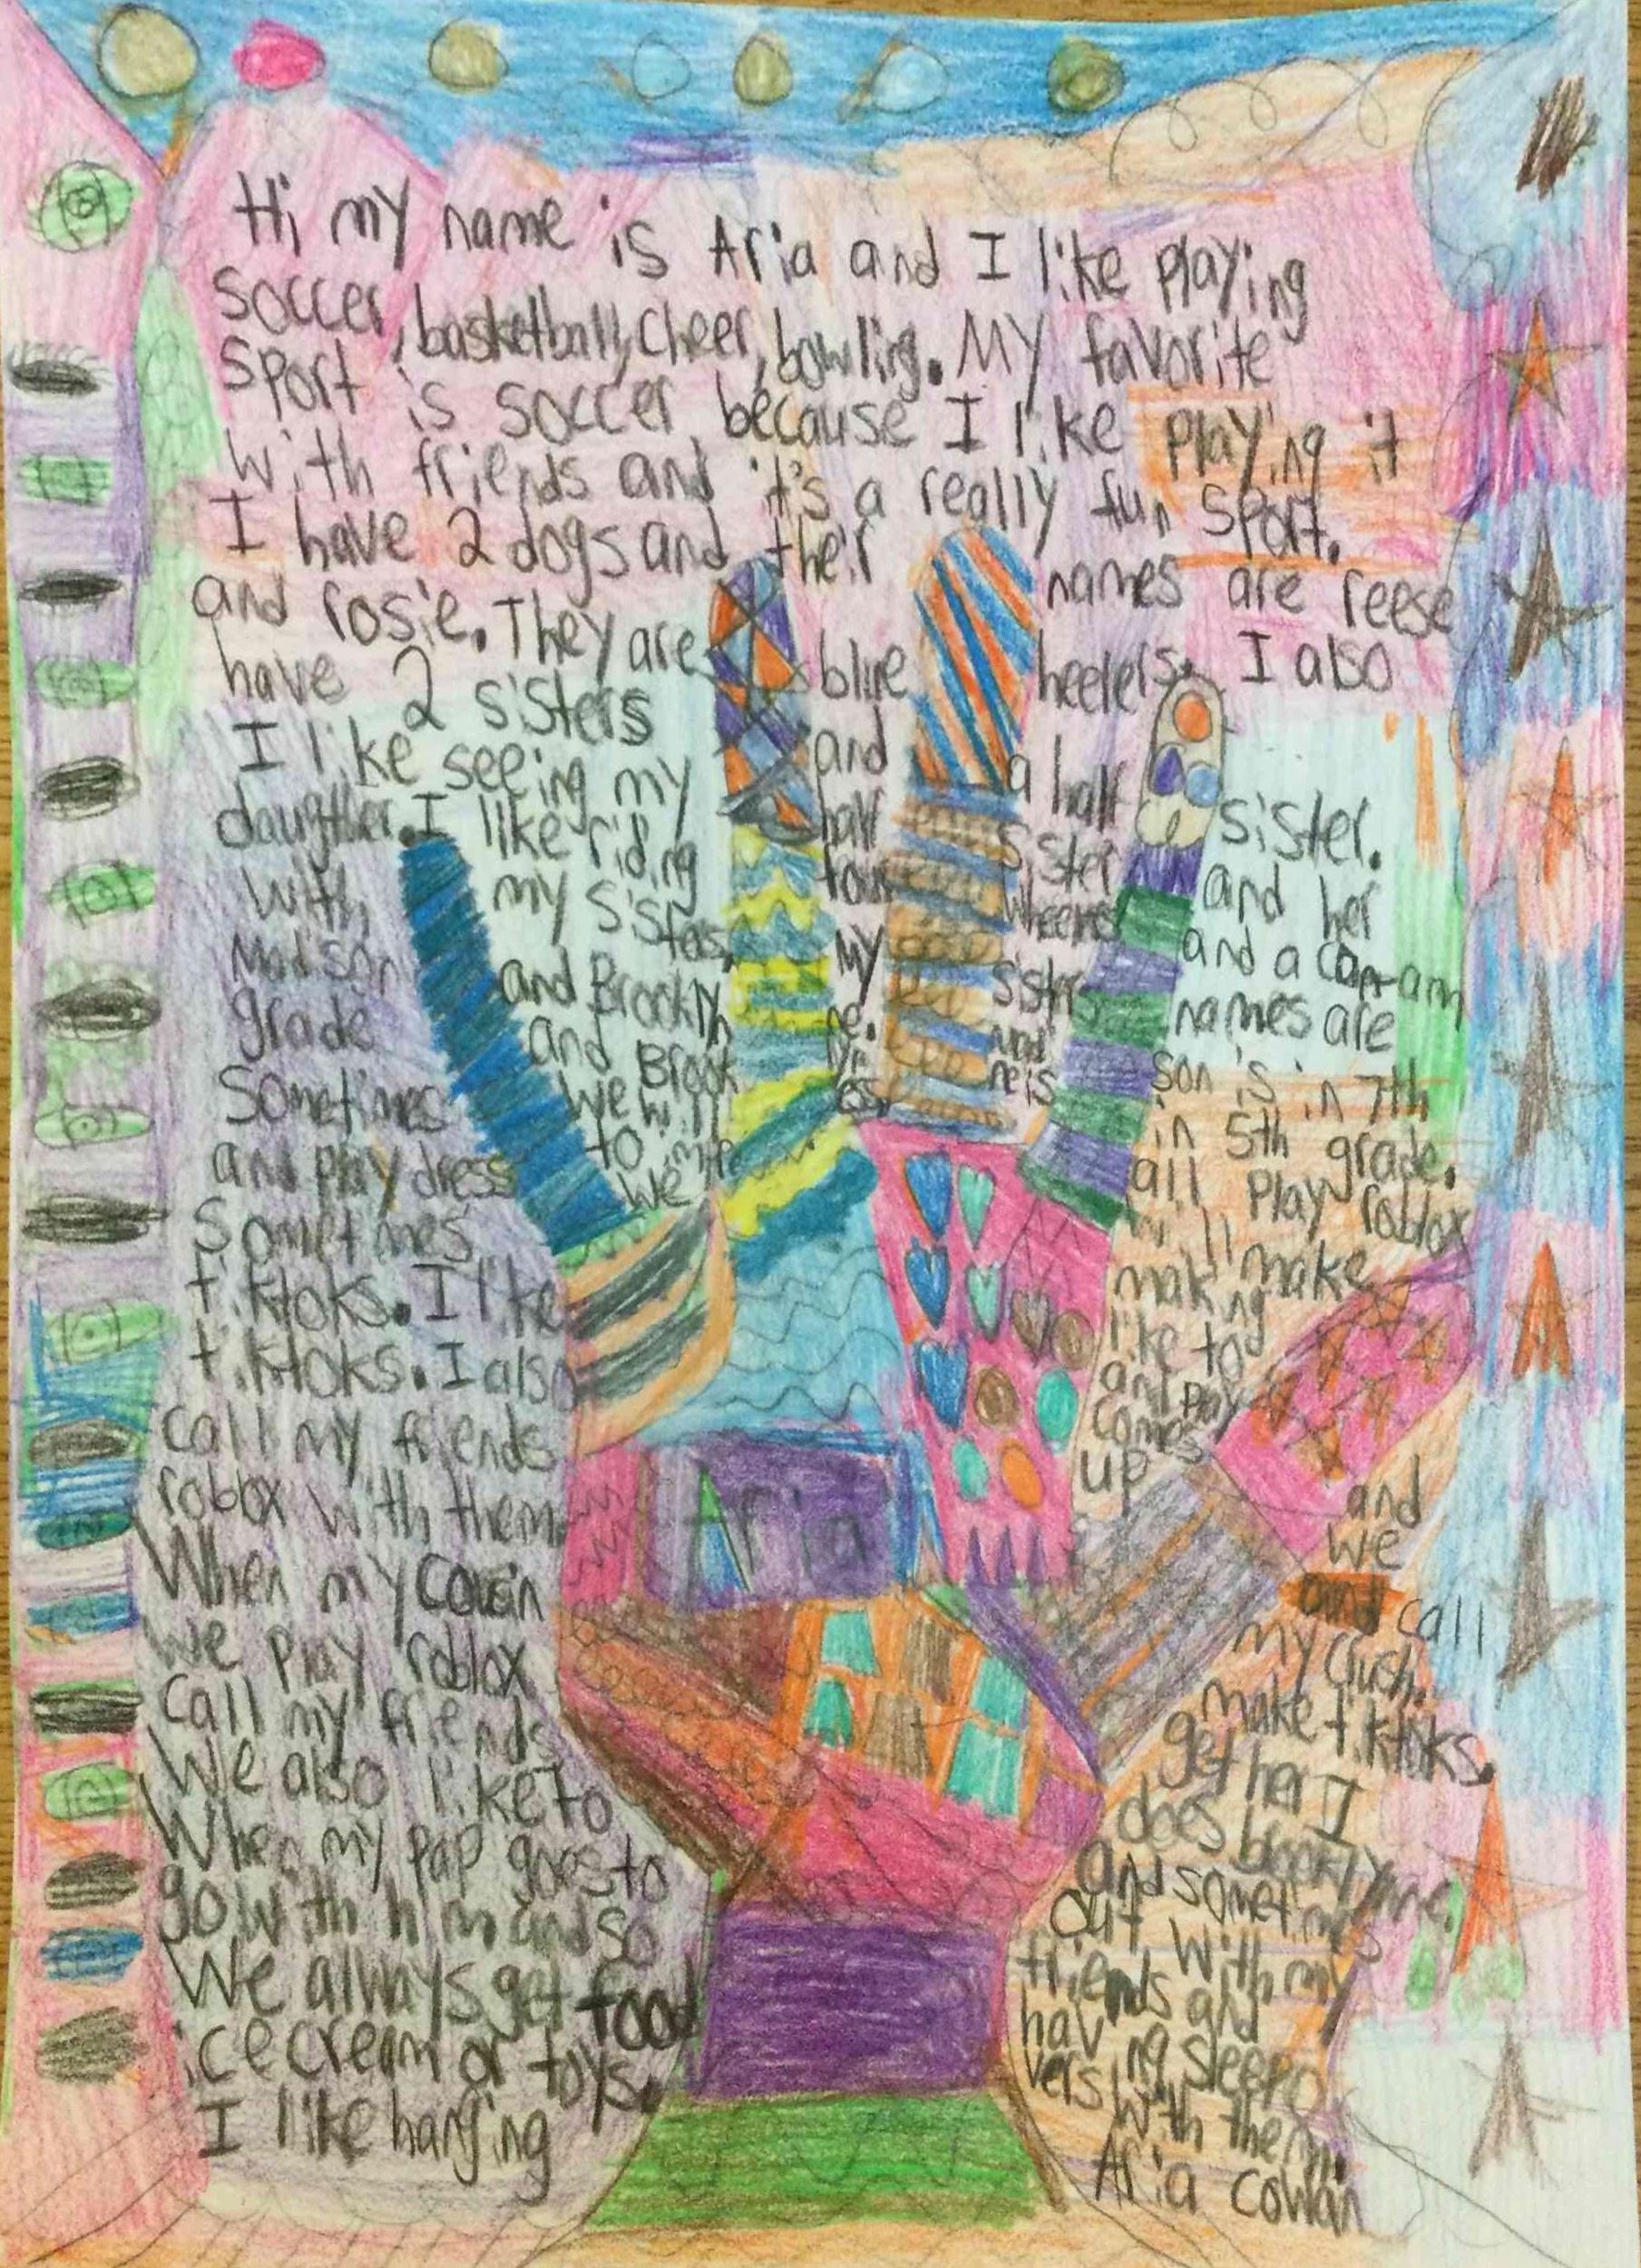 Hi my name is Aria and I like playing
soccer, basketball, cheer, bowling. My favorite
sport is soccer because I like playing it
with friends and it's a really fun sport.
I have 2 dogs and their names are reese
and rosie. They are blue heelers. I also
have 2 sisters and a half sister.
I like seeing my half sister and her
daughter. I like riding four wheelers and a can-am
with my sisters, My sisters names are
Madison and Brooklynne. Madison is in 7th
grade and Brooklynne is in 5th grade.
Sometimes we will all play roblox
and play dress to impress
Sometimes we will make
tiktoks. I like making
tiktoks. I also like to
call my friends and play
roblox with them
When my cousin comes up
we play roblox and we
call my friends and call
my crush.
We also like to make tiktoks.
When my pap goes to get her I
go with him and so does brooklynne.
We always get food and sometimes
ice cream or toys.
I like hanging out with my
friends and
having sleepo
vers with them.
Aria Cowan
Aria